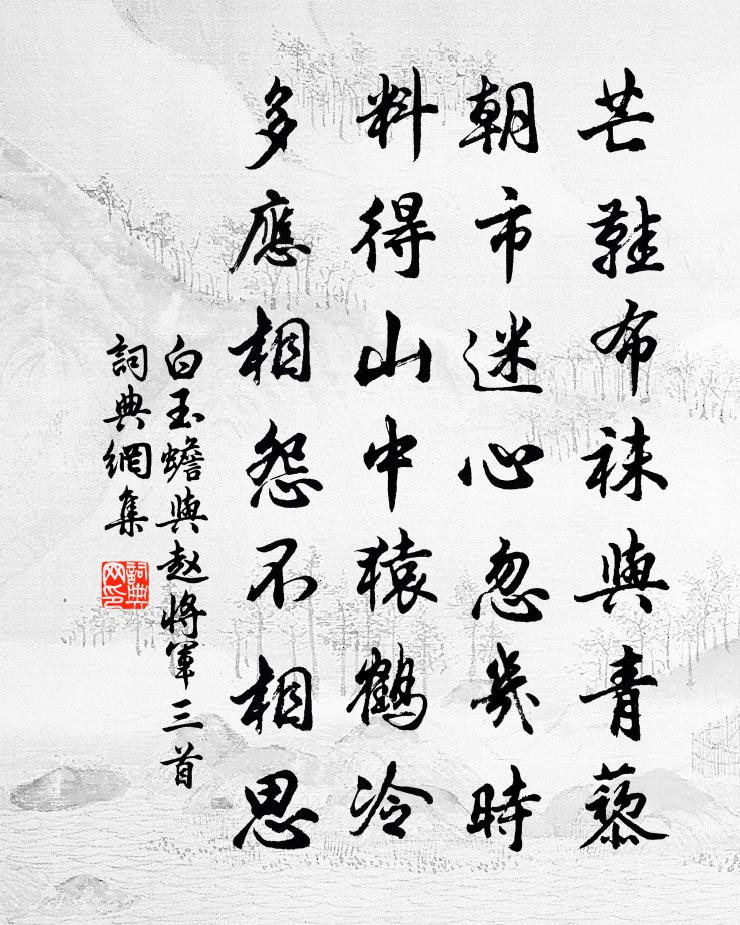 芒鞋布袜與青藜
朝市迷心忽幾時
料得山中猿鶴冷
多應相怨不相思
白玉蟾與赵將軍三首
詞典網集
詞典网印